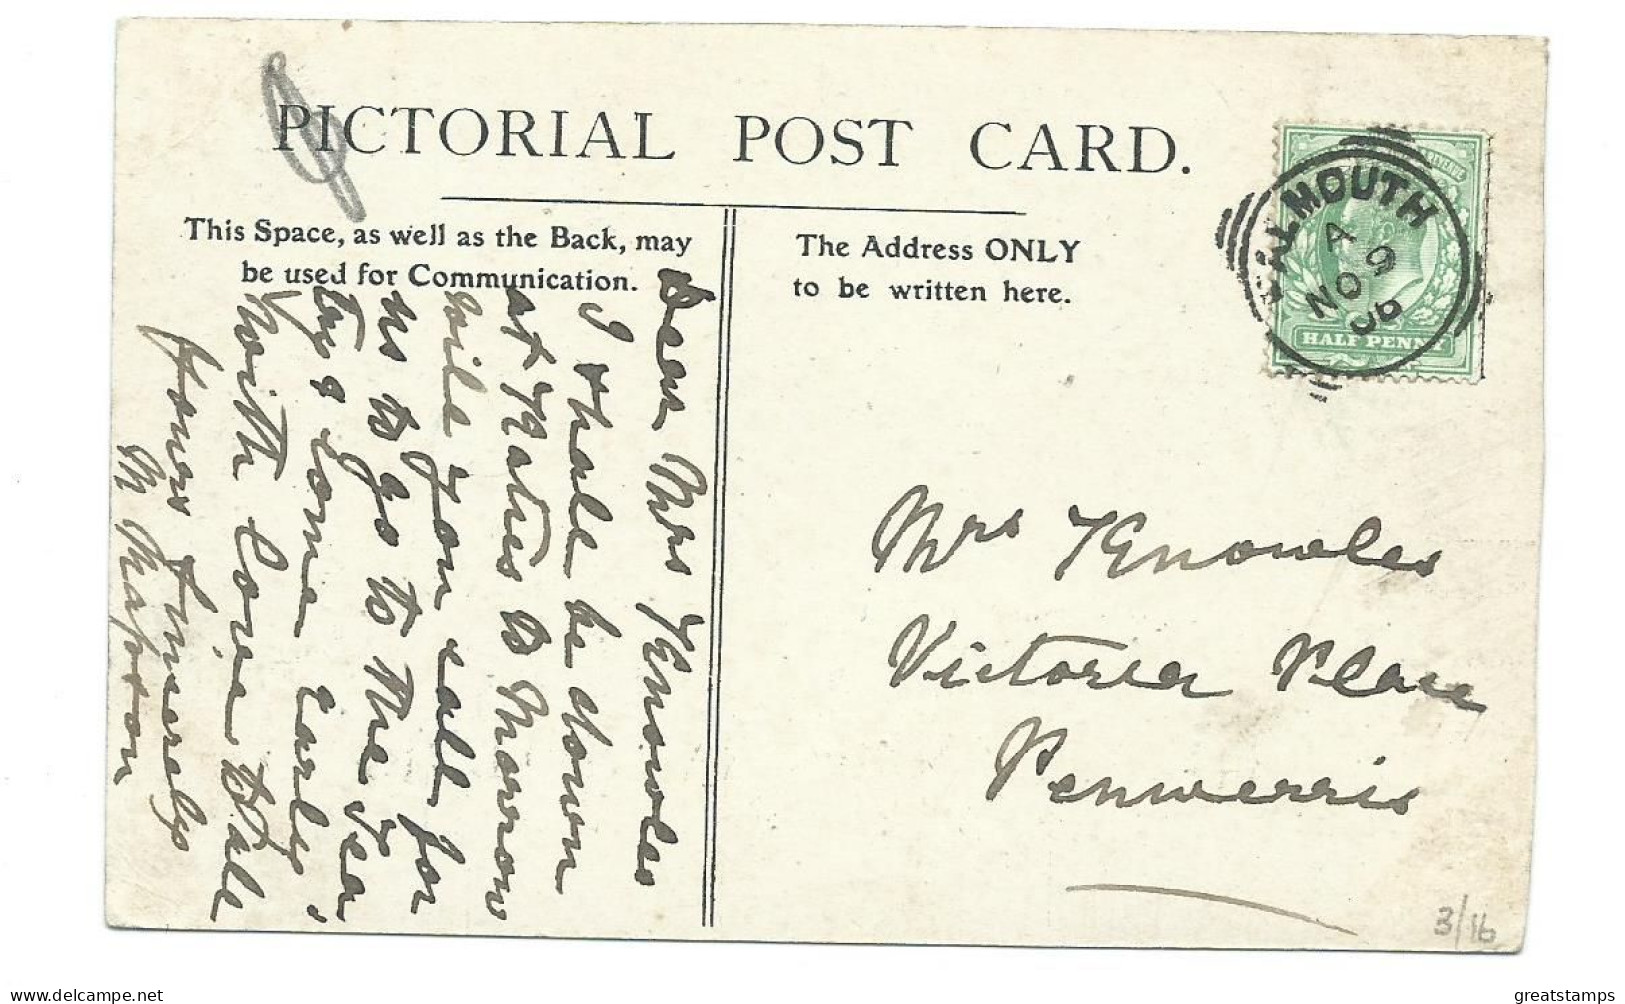 PICTORIAL POST CARD.
This Space, as well as the Back, may
be used for Communication.
The Address ONLY
to be written here.
Dear Mrs Knowles
I shale be down
at Katies to Morrow
wile you call for
us to go to the Tea
try & come early
With love to all
Yours sincerely
M
Mrs Knowles
Victoria Place
Penwerris
FALMOUTH
A
9
NO
06
REVENUE
HALF PENNY
3/16
the-islander
greatstamps